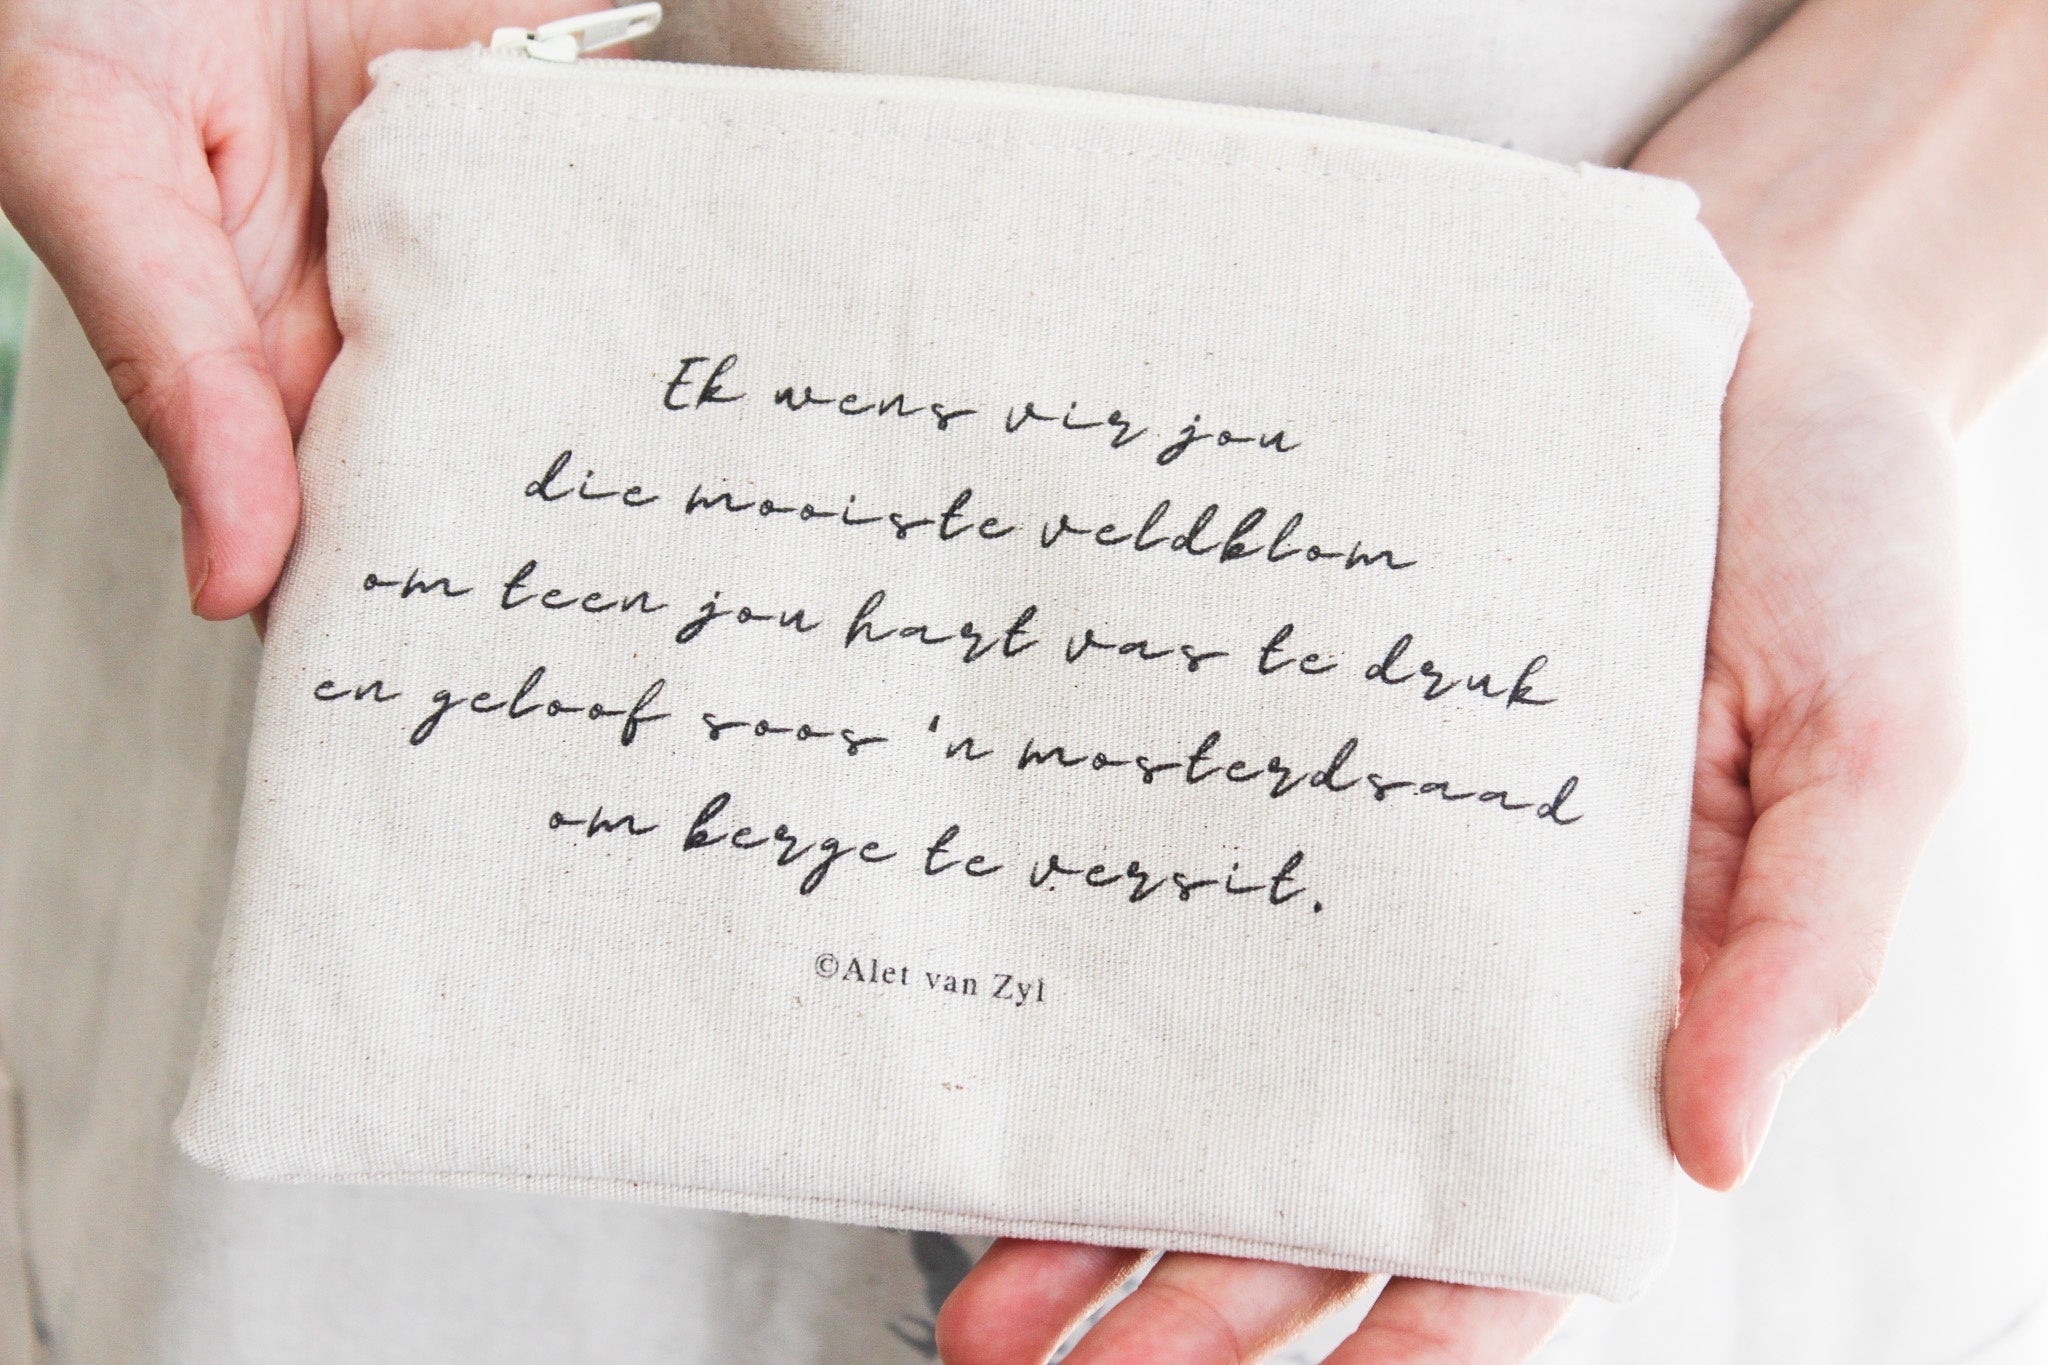 Ek wens vir jou
die mooiste veldblom
om teen jou hart vas te druk
en geloof soos 'n mosterdsaad
om berge te versit.
©Alet van Zyl